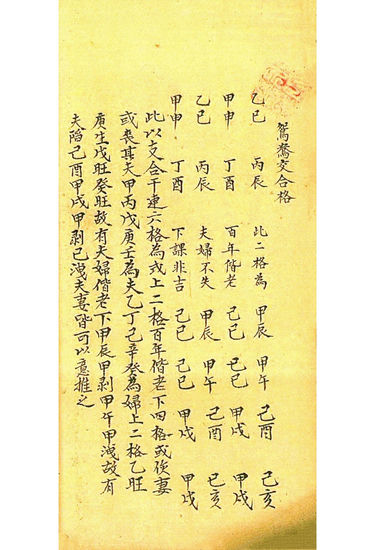 鴛鴦交合格
乙巳 丙辰 此二格為 甲辰 甲午 己酉 己亥
甲申 丁酉 百年偕老 己巳 己巳 甲戌 甲戌
乙巳 丙辰 夫婦不失 甲辰 甲午 己酉 己亥
甲申 丁酉 下課非吉 己巳 己巳 甲戌 甲戌
此以支合干連六格為或上二格百年偕老下四格或妻
或喪其夫甲丙戊庚壬為夫乙丁己辛癸為婦上二格乙旺
庚生戊旺癸旺故有夫婦偕老下甲辰甲剥甲午甲洩故有
夫陷己酉甲戌甲剥己洩夫妻皆可以意推之